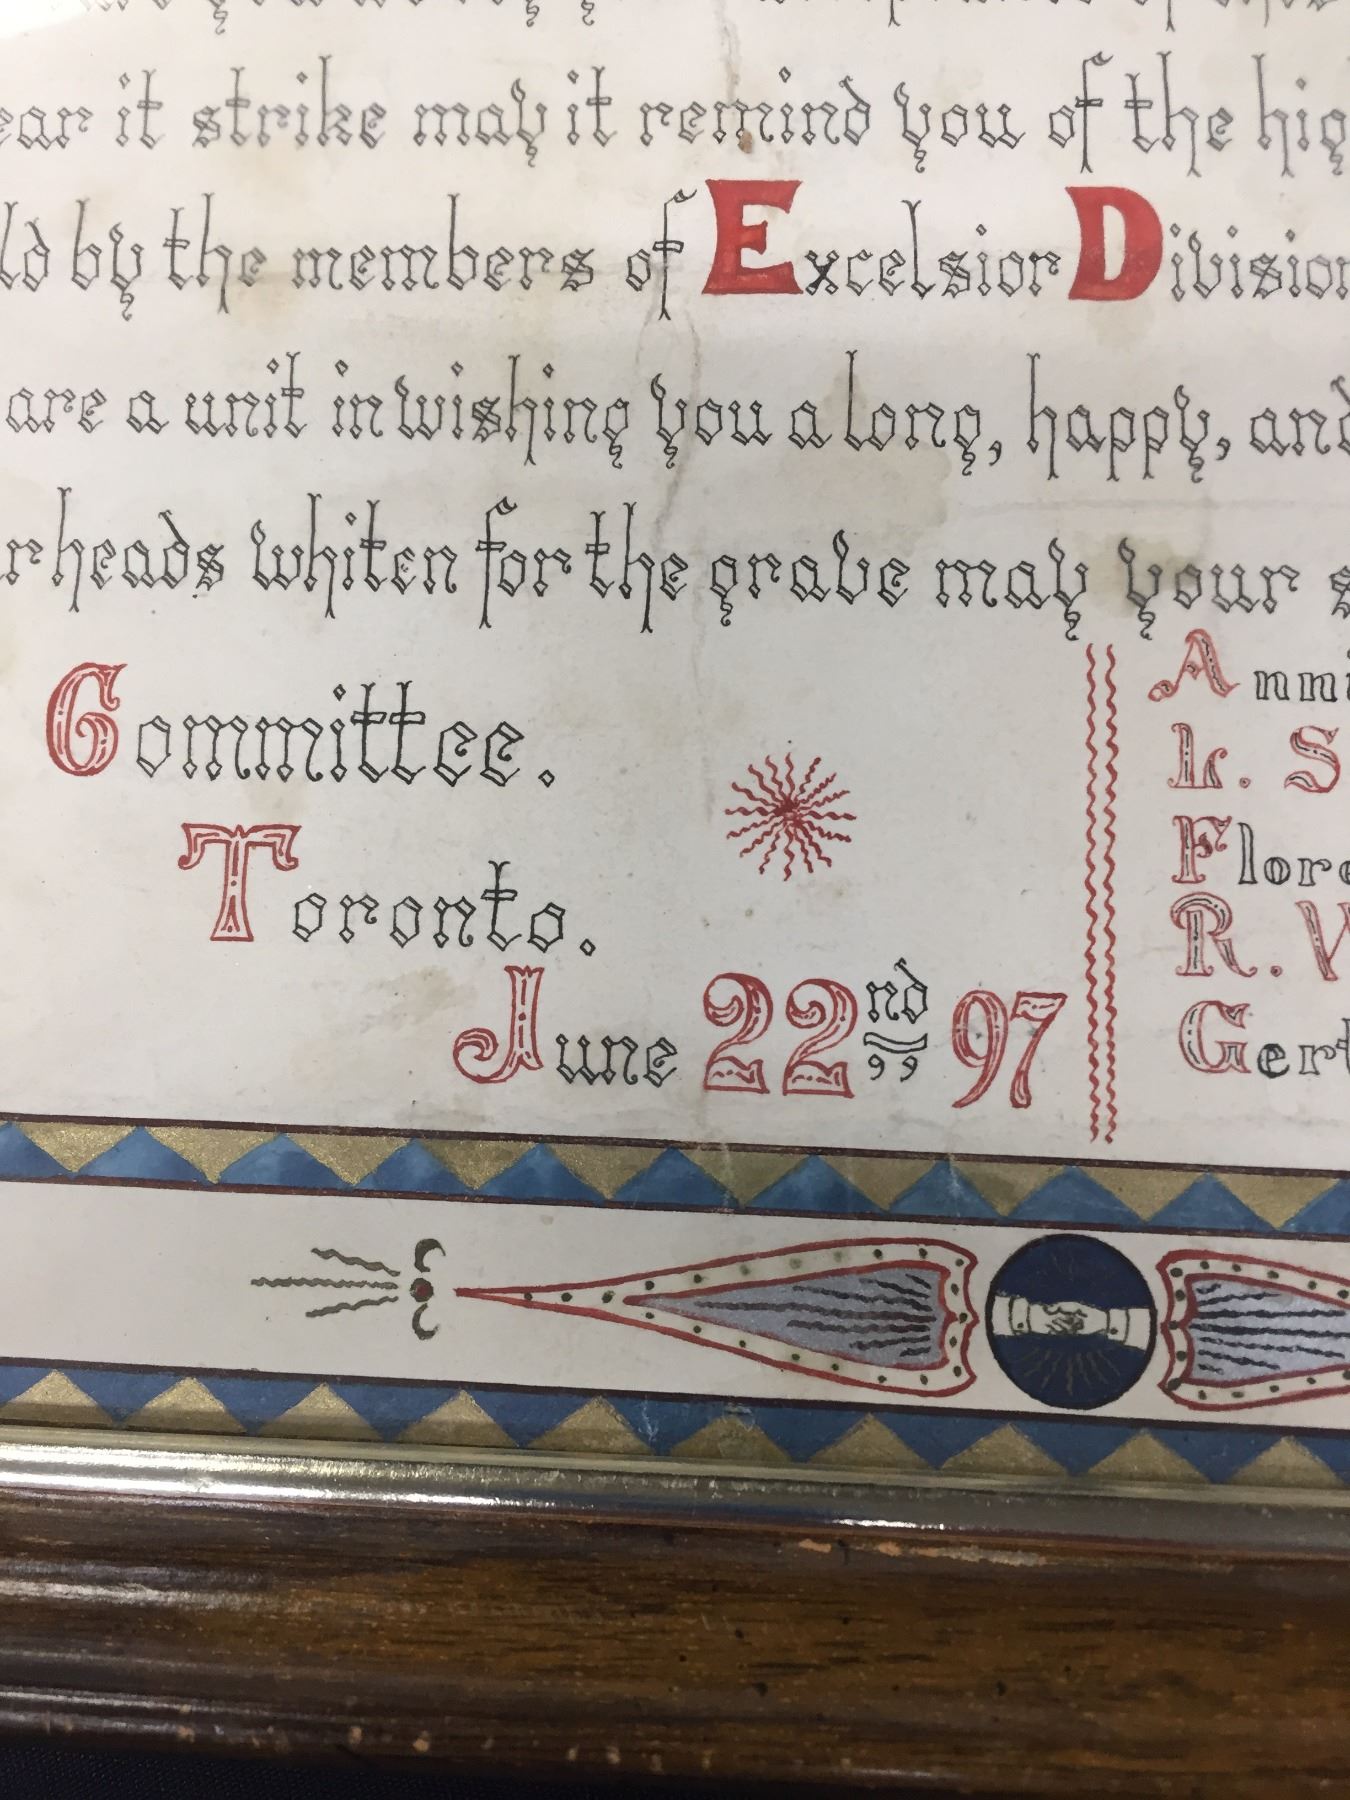 ear it strike may it remind you of the hig
ld by the members of Excelsior Division
are a unit in wishing you a long, happy, and
r heads whiten for the grave may your s
Committee.
Toronto.
June 22nd 97
Anni
L. S
Flore
R. W
Gert